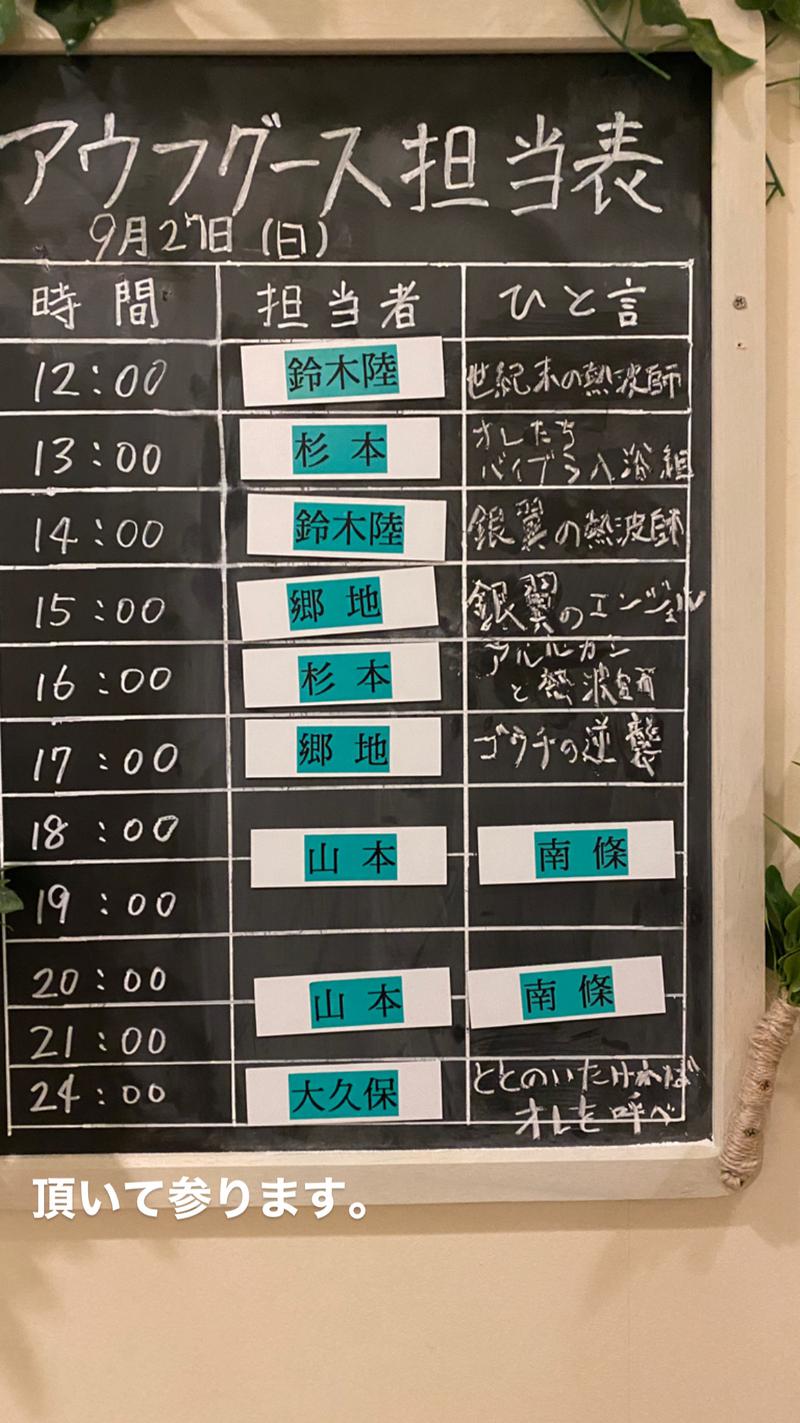 アウフグース担当表
9月27日(日)
時間 担当者 ひと言
12:00 鈴木陸 世紀末の熱波師
13:00 杉本 オレたち
バイブラ入浴組
14:00 鈴木陸 銀翼の熱波師
15:00 郷地 銀翼のエンジェル
16:00 杉本 アルルカン
と熱波
17:00 郷地 ゴウチの逆襲
18:00
山本 南條
19:00
20:00
山本 南條
21:00
24:00 大久保 ととのいたければ
オレを呼べ
頂いて参ります。